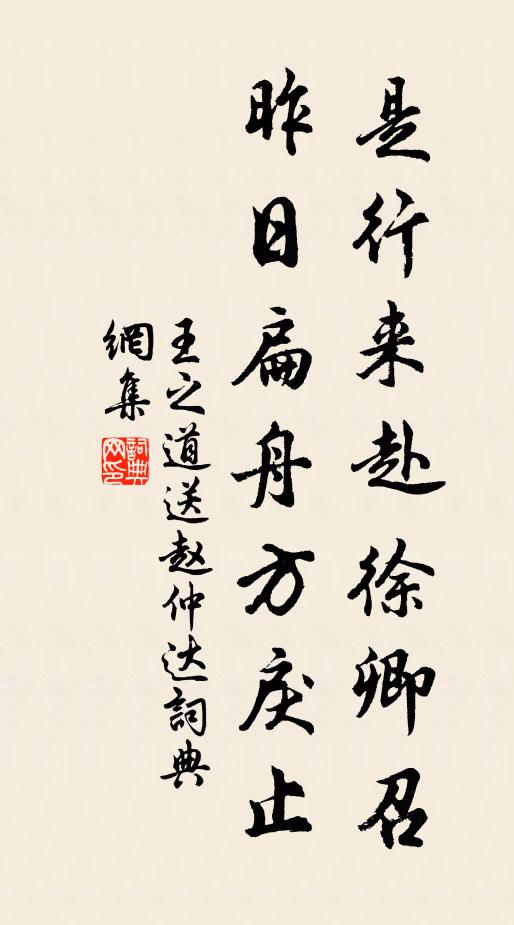 是行来赴徐卿召
昨日扁舟方戾止
王之道送赵仲达詞典
網集
詞典
网印